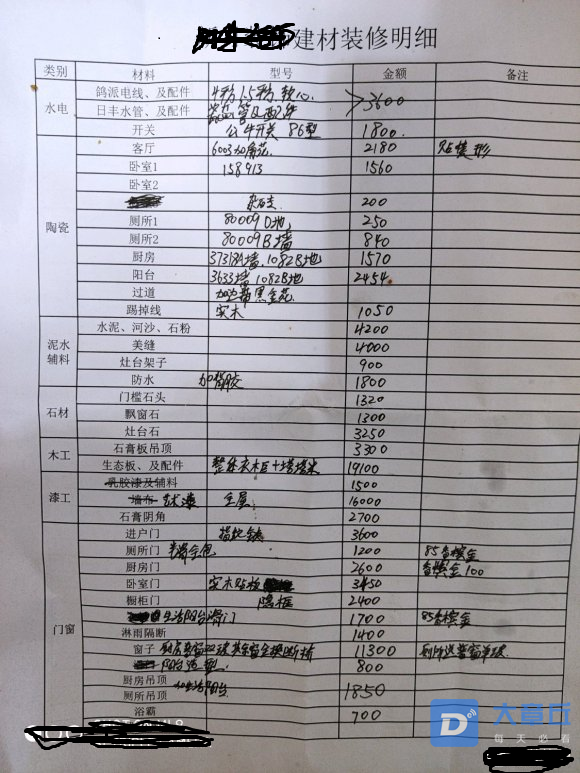 建材装修明细
类别 材料 型号 金额 备注
水电
鸽派电线、及配件 4平方 1.5平方 软心
日丰水管、及配件 管及配件 3600
开关 公牛开关 86型 1800
陶瓷
客厅 6003加角花 2180 贴造形
卧室1 158913 1560
卧室2
杂石支 200
厕所1 80009D地 250
厕所2 80009B墙 840
厨房 37318A墙 1082B地 1570
阳台 3633墙 1082B地 2454
过道 加边带黑金花
踢掉线 实木 1050
泥水辅料
水泥、河沙、石粉 4200
美缝 4000
灶台架子 900
防水 加背胶 1800
石材
门槛石头 1320
飘窗石 1300
灶台石 3250
木工
石膏板吊顶 3300
生态板、及配件 整体衣木巨+塔塔米 19100
漆工
乳胶漆及辅料 1500
墙布 艺术漆 全屋 16000
石膏阴角 2700
门窗
进户门 指纹锁 3600
厕所门 半滑全包 1200 85香槟金
厨房门 2600 香槟金100
卧室门 实木贴板 3450
橱柜门 隐框 2400
生活阳台滑门 1700 85香槟金
淋雨隔断 1400
窗子 11300
800
厨房吊顶 加生活阳台
厕所吊顶 1850
浴霸 700
大百丘
每天必看